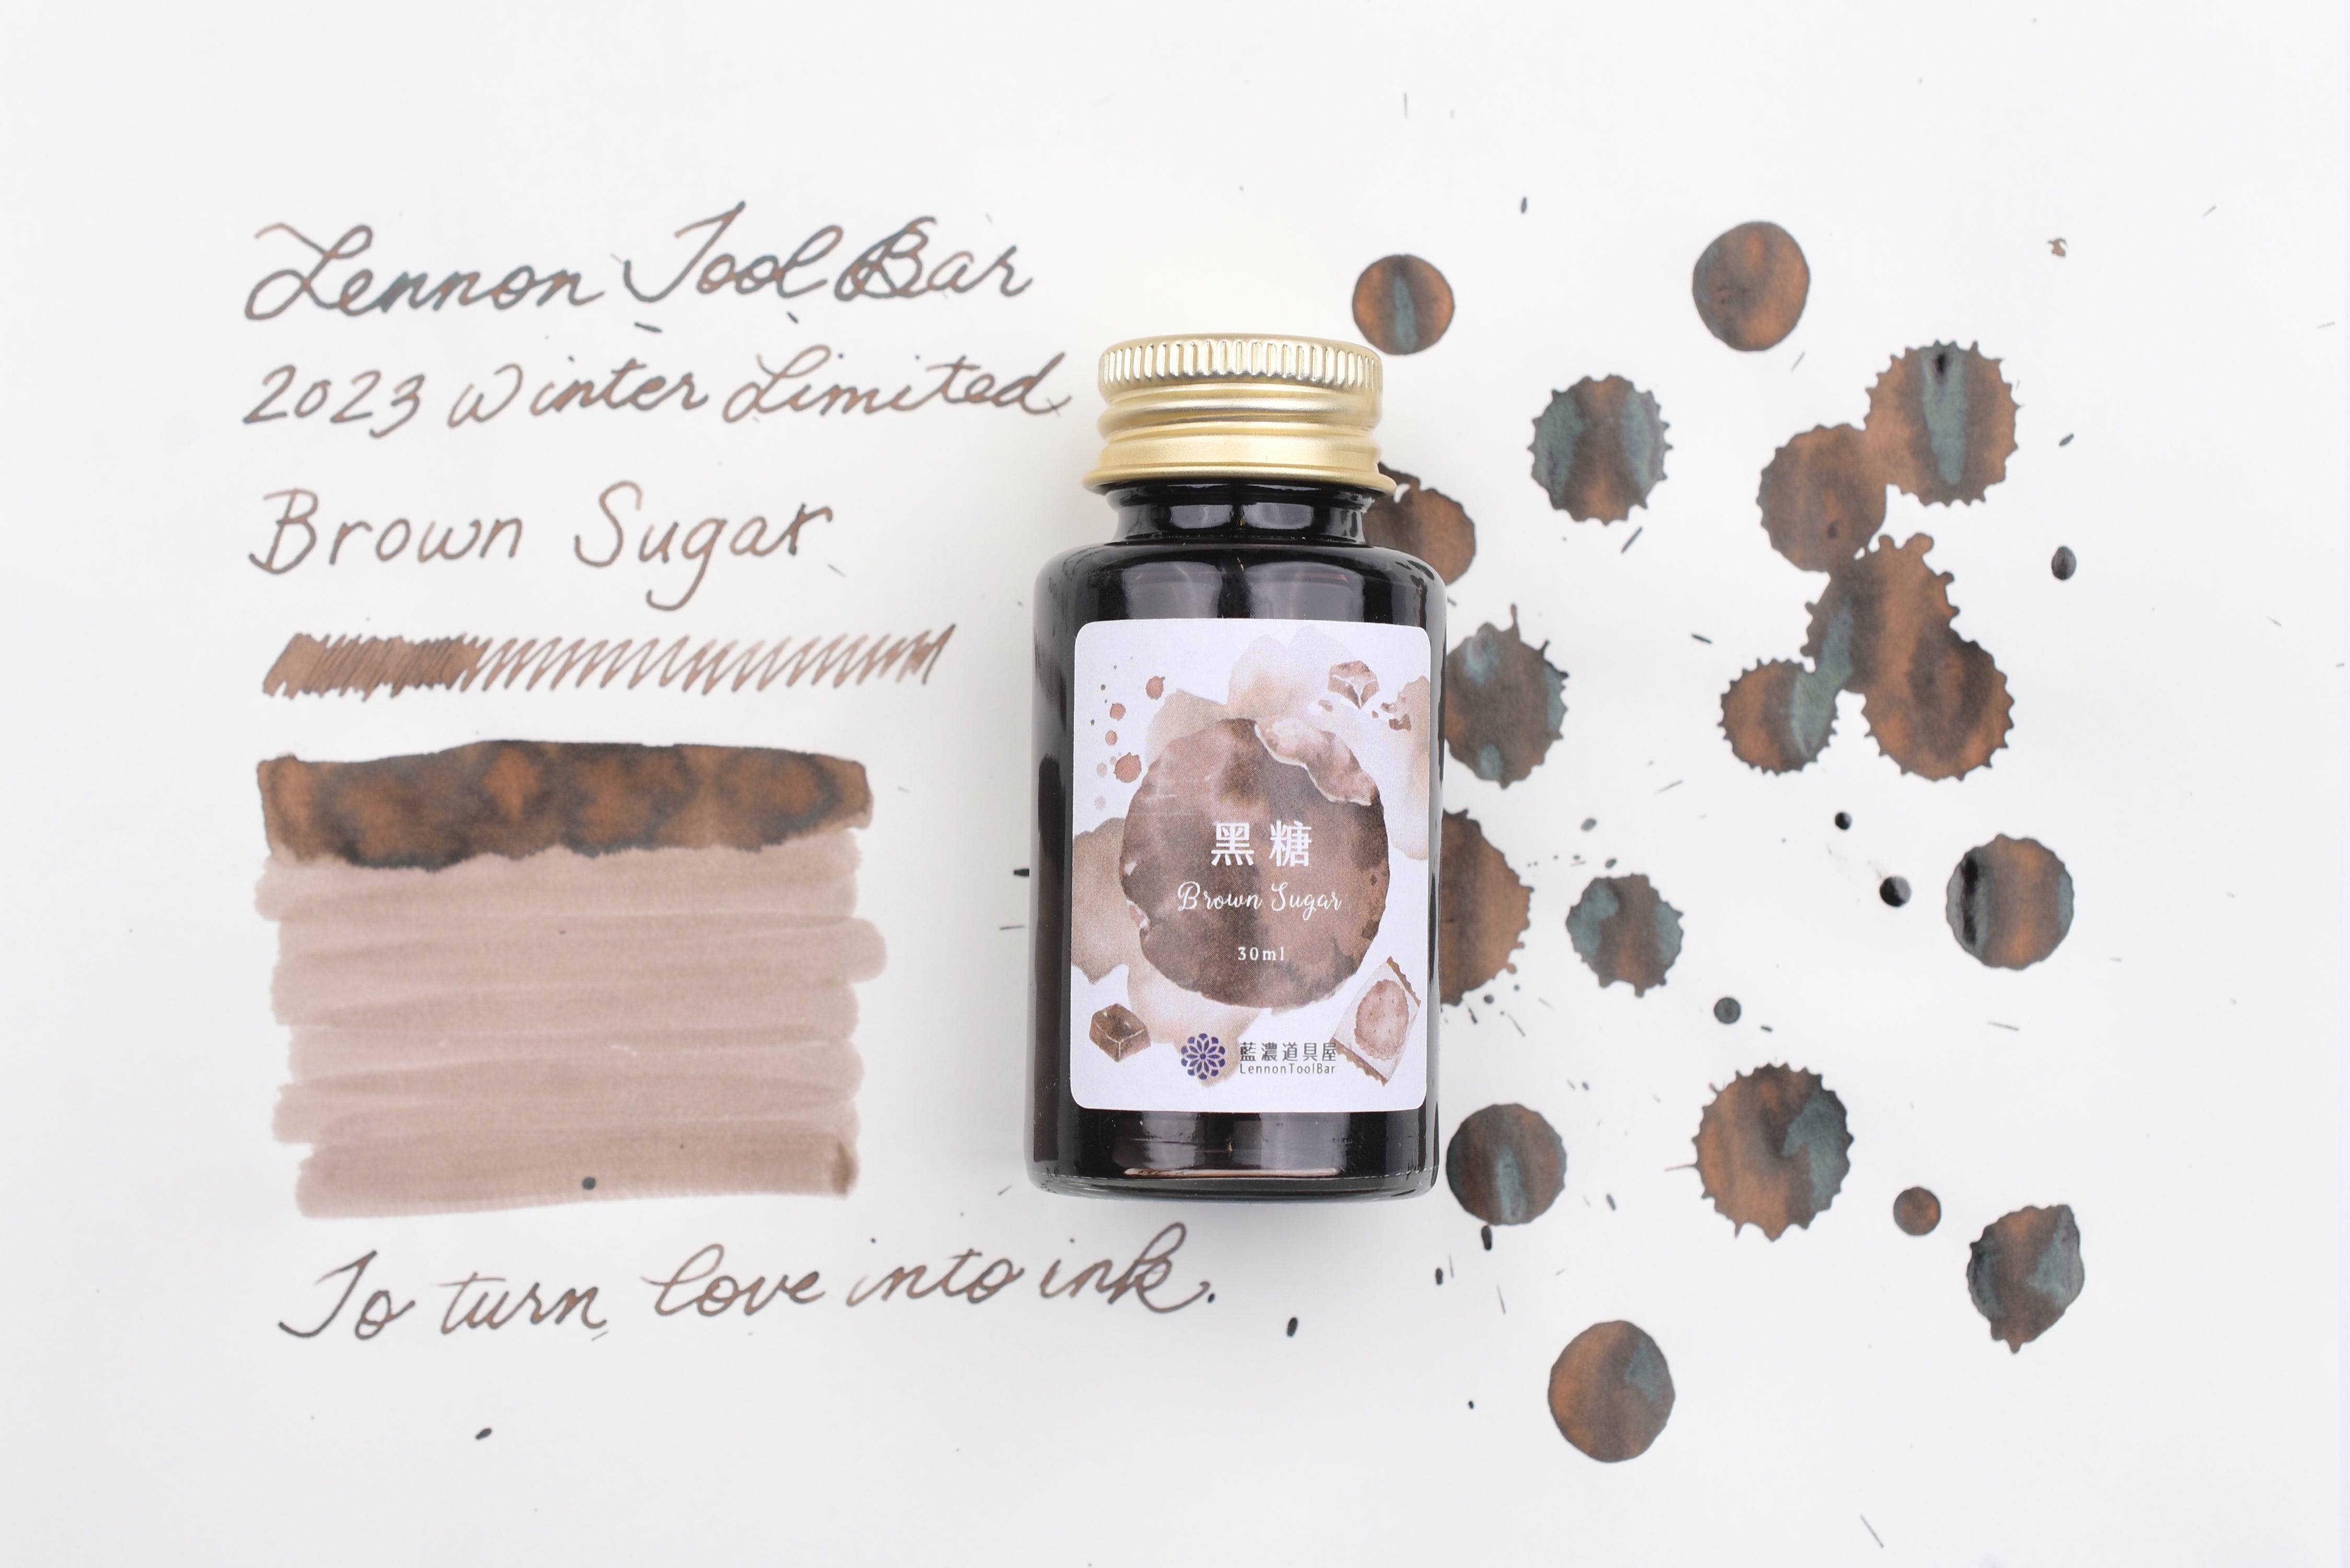 Lennon Tool Bar
2023 Winter Limited
Brown Sugar
To turn love into ink.
黑糖
Brown Sugar
30ml
藍濃道具屋
LennonToolBar